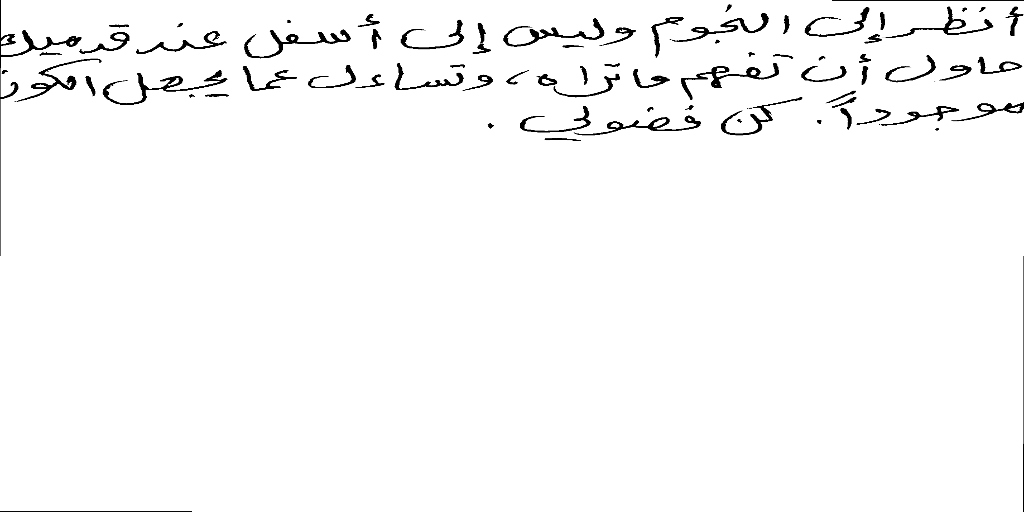 أنظر إلى النجوم وليس إلى أسفل عند قدميك
حاول أن تفهم ما تراه، وتساءل عما يجعل الكون
موجوداً. كن فضولي.